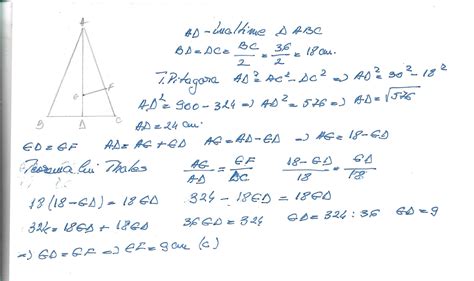 A
G F
B D C
AD - înălțime Δ ABC
BD = DC = BC/2 = 36/2 = 18 cm.
T. Pitagora AD² = AC² - DC² => AD² = 30² - 18²
AD² = 900 - 324 => AD² = 576 => AD = √576
AD = 24 cm.
GD = GF AD = AG + GD AG = AD - GD => AG = 18 - GD
Teorema lui Thales AG/AD = GF/DC 18-GD/18 = GD/18
18(18 - GD) = 18GD 324 - 18GD = 18GD
324 = 18GD + 18GD 36GD = 324 GD = 324 : 36 GD = 9
=> GD = GF => GF = 9 cm (c)